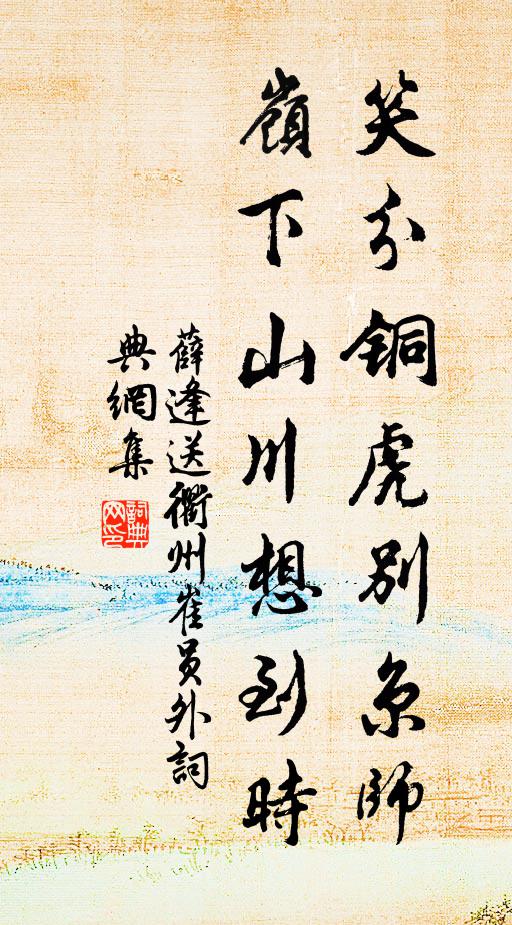 笑分铜虎别京師
嶺下山川想到時
薛逢送衢州崔员外詞
典網集
詞典
网印